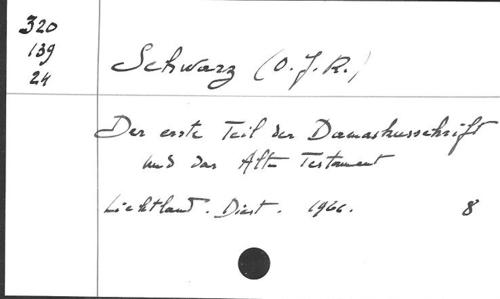 320
139
24
Schwarz (O. J. R.)
Der erste Teil der Damaskusschrift
und das Alte Testament
Lichtland. Diest. 1966. 8